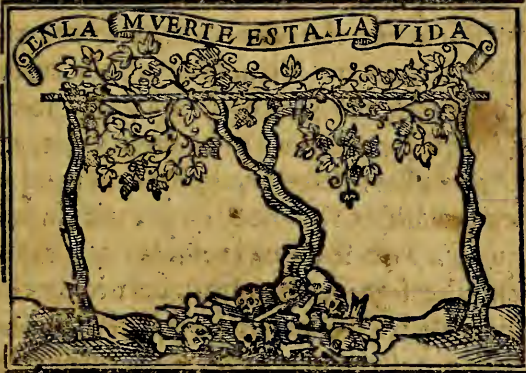 EN LA MVERTE ESTA LA VIDA